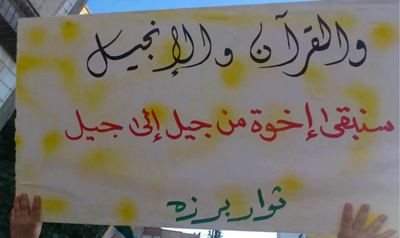 والقرآن والإنجيل
سنبقى إخوة من جيل إلى جيل
ثوار برزه